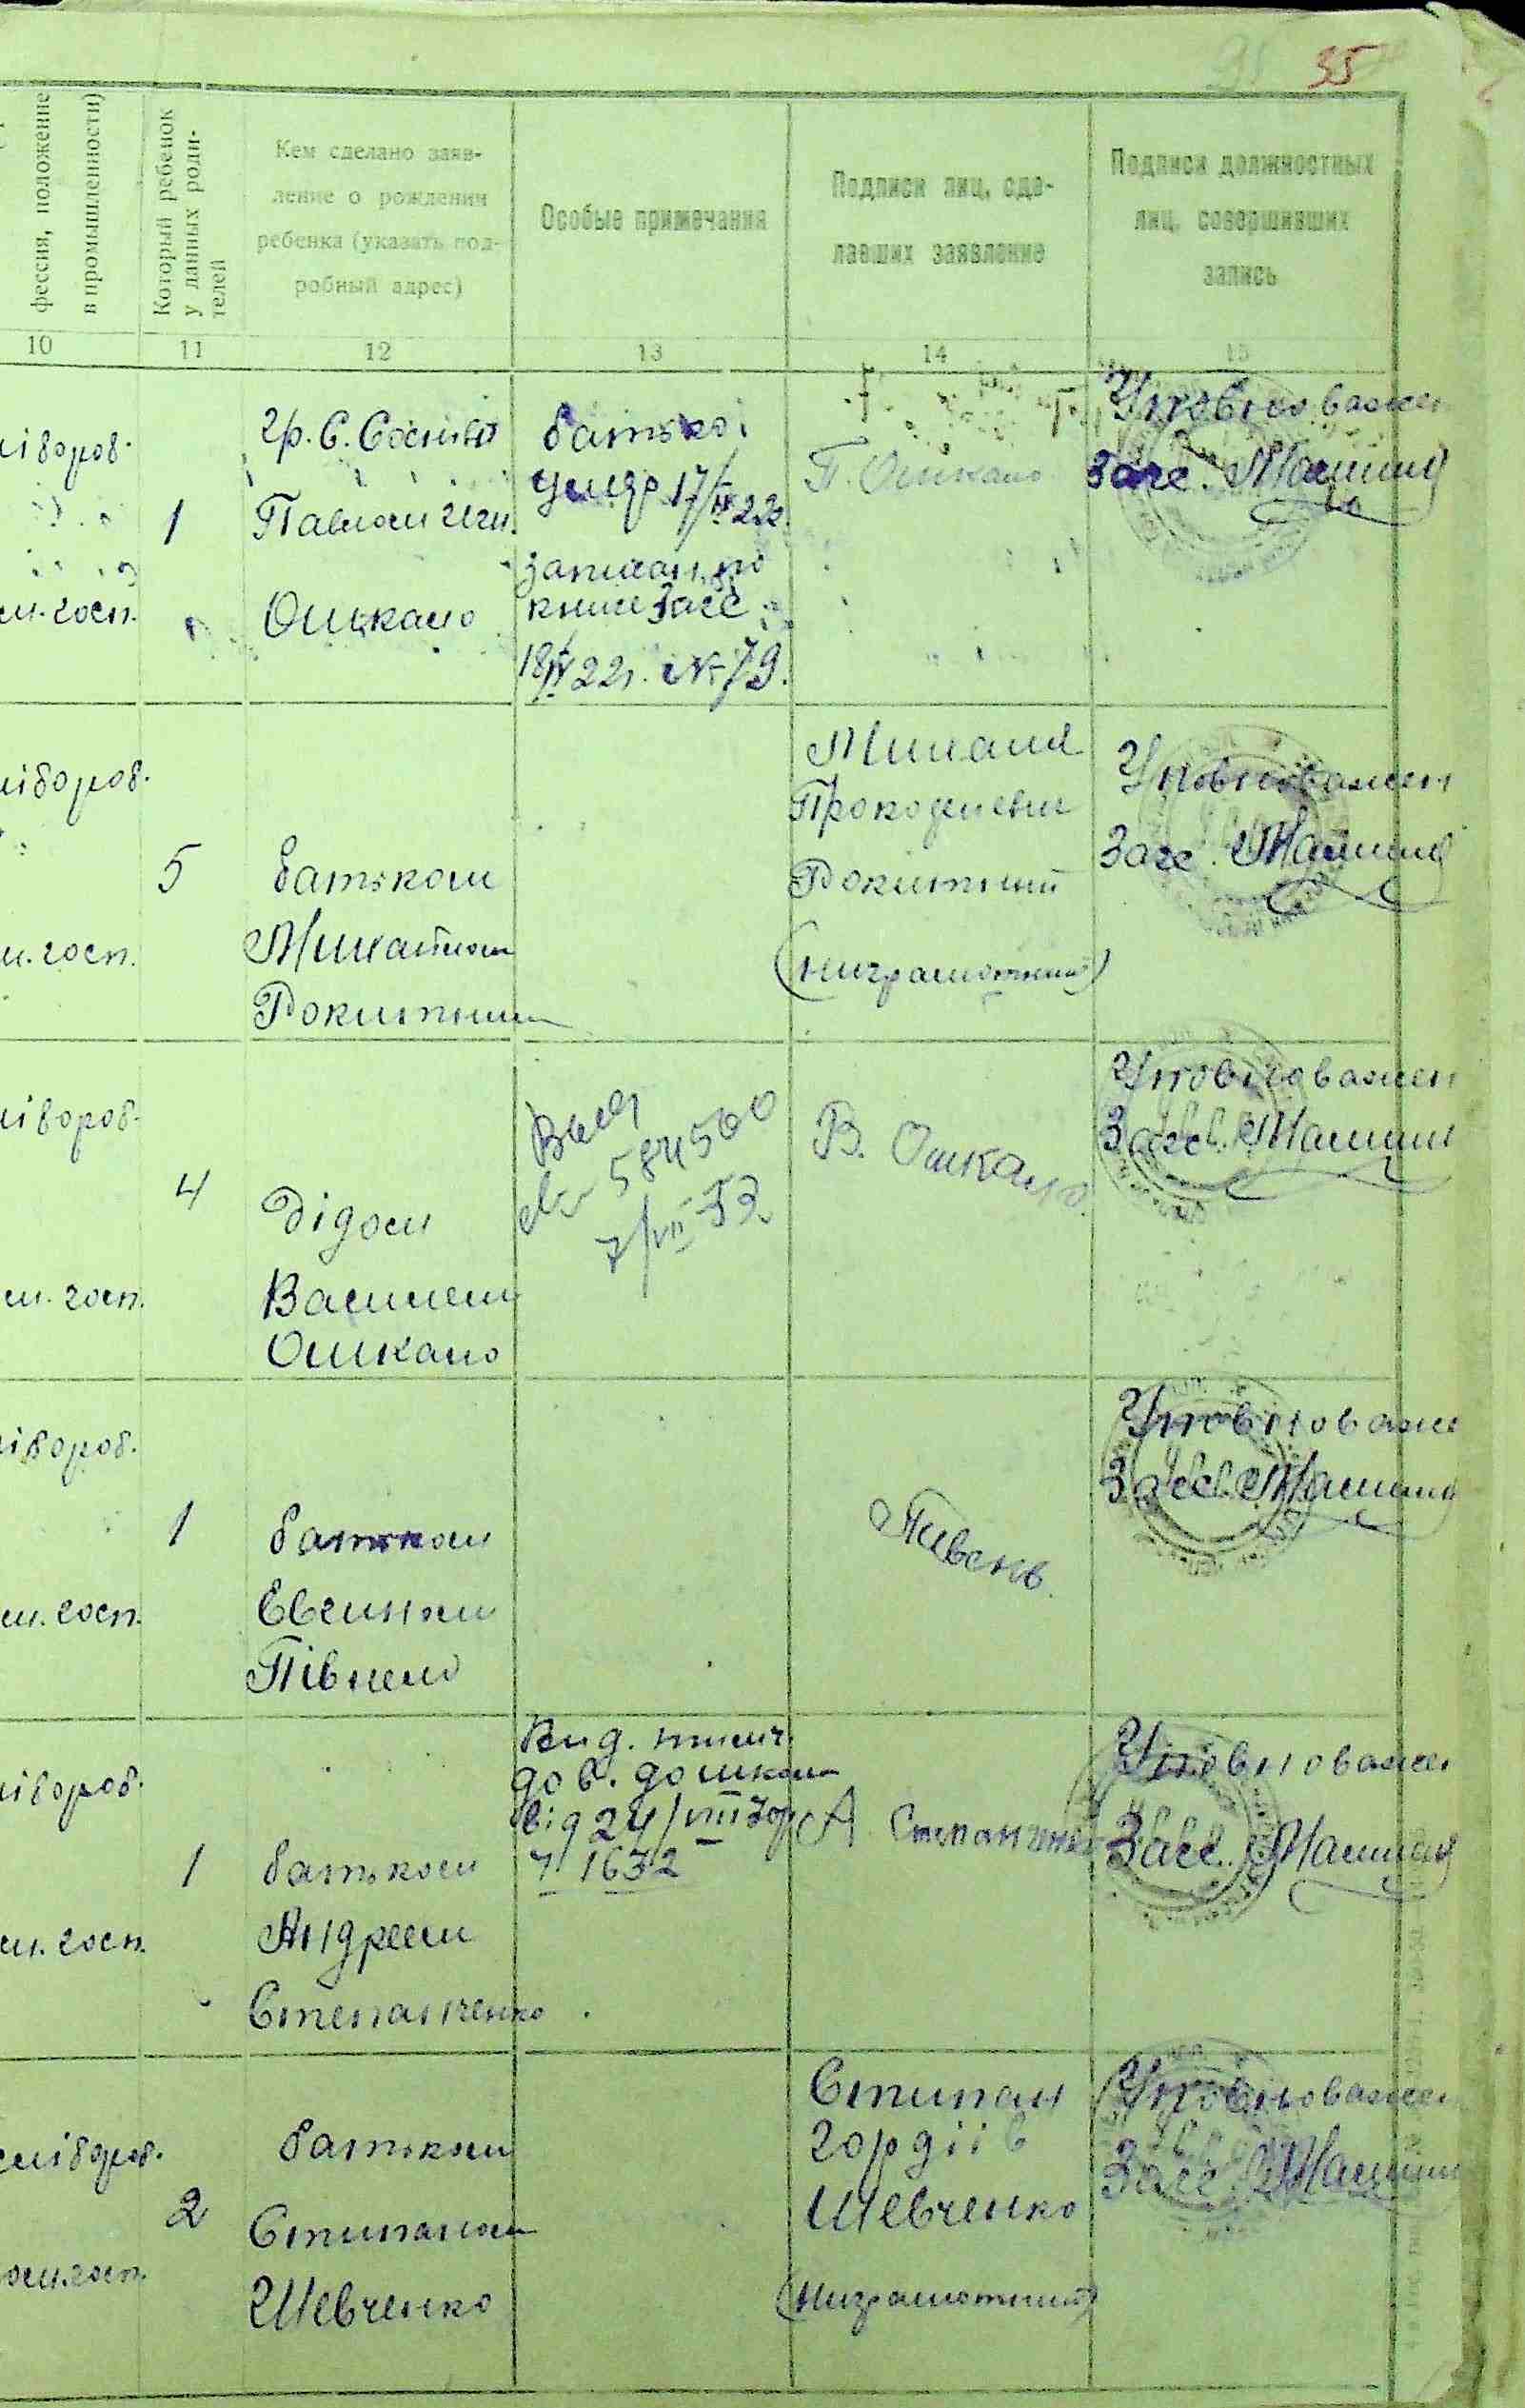 35
фессия, положение
в промышленности)
Который ребенок
у данных роди-
телей
Кем сделано заяв-
ление о рождении
ребенка (указать под-
робный адрес)
Особые примечания
Подписи лиц, сде-
лавших заявление
Подписи должностных
лиц, совершивших
запись
10 11 12 13 14 15
хлібороб.
1
гр. С.
Павлом
Ошкало
батько
умер 17/IV 22г.
записан по
книге Загс
18/IV 22г. № 79.
П. Ошкало
Уповноважен
Загс.
м. госп.
хлібороб.
5
Батьком
Михайлом
Рокитним
Михаил
Прокофиевич
Рокитний
(ниграмотний)
Уповноважен
Загс.
м. госп.
хлібороб.
4
Дідом
Василем
Ошкало
Выд
584500
7/VII 52
В. Ошкало.
Уповноважен
Загс.
м. госп.
хлібороб.
1
батьком
Евгином
Півнем
Пивень.
Уповноваже
Загс.
м. госп.
хлібороб.
1
батьком
Андреем
Степанченко
Вид.
дов. до школи
від 24/VIII 30р
ч 1632
А Степанченко
Уповноважен
Загс.
м. госп.
хлібороб.
2
батьком
Стипаном
Шевченко
Стипан
Гордіів
Шевченко
(Ниграмотний)
Уповноважен
Загс.
м. госп.